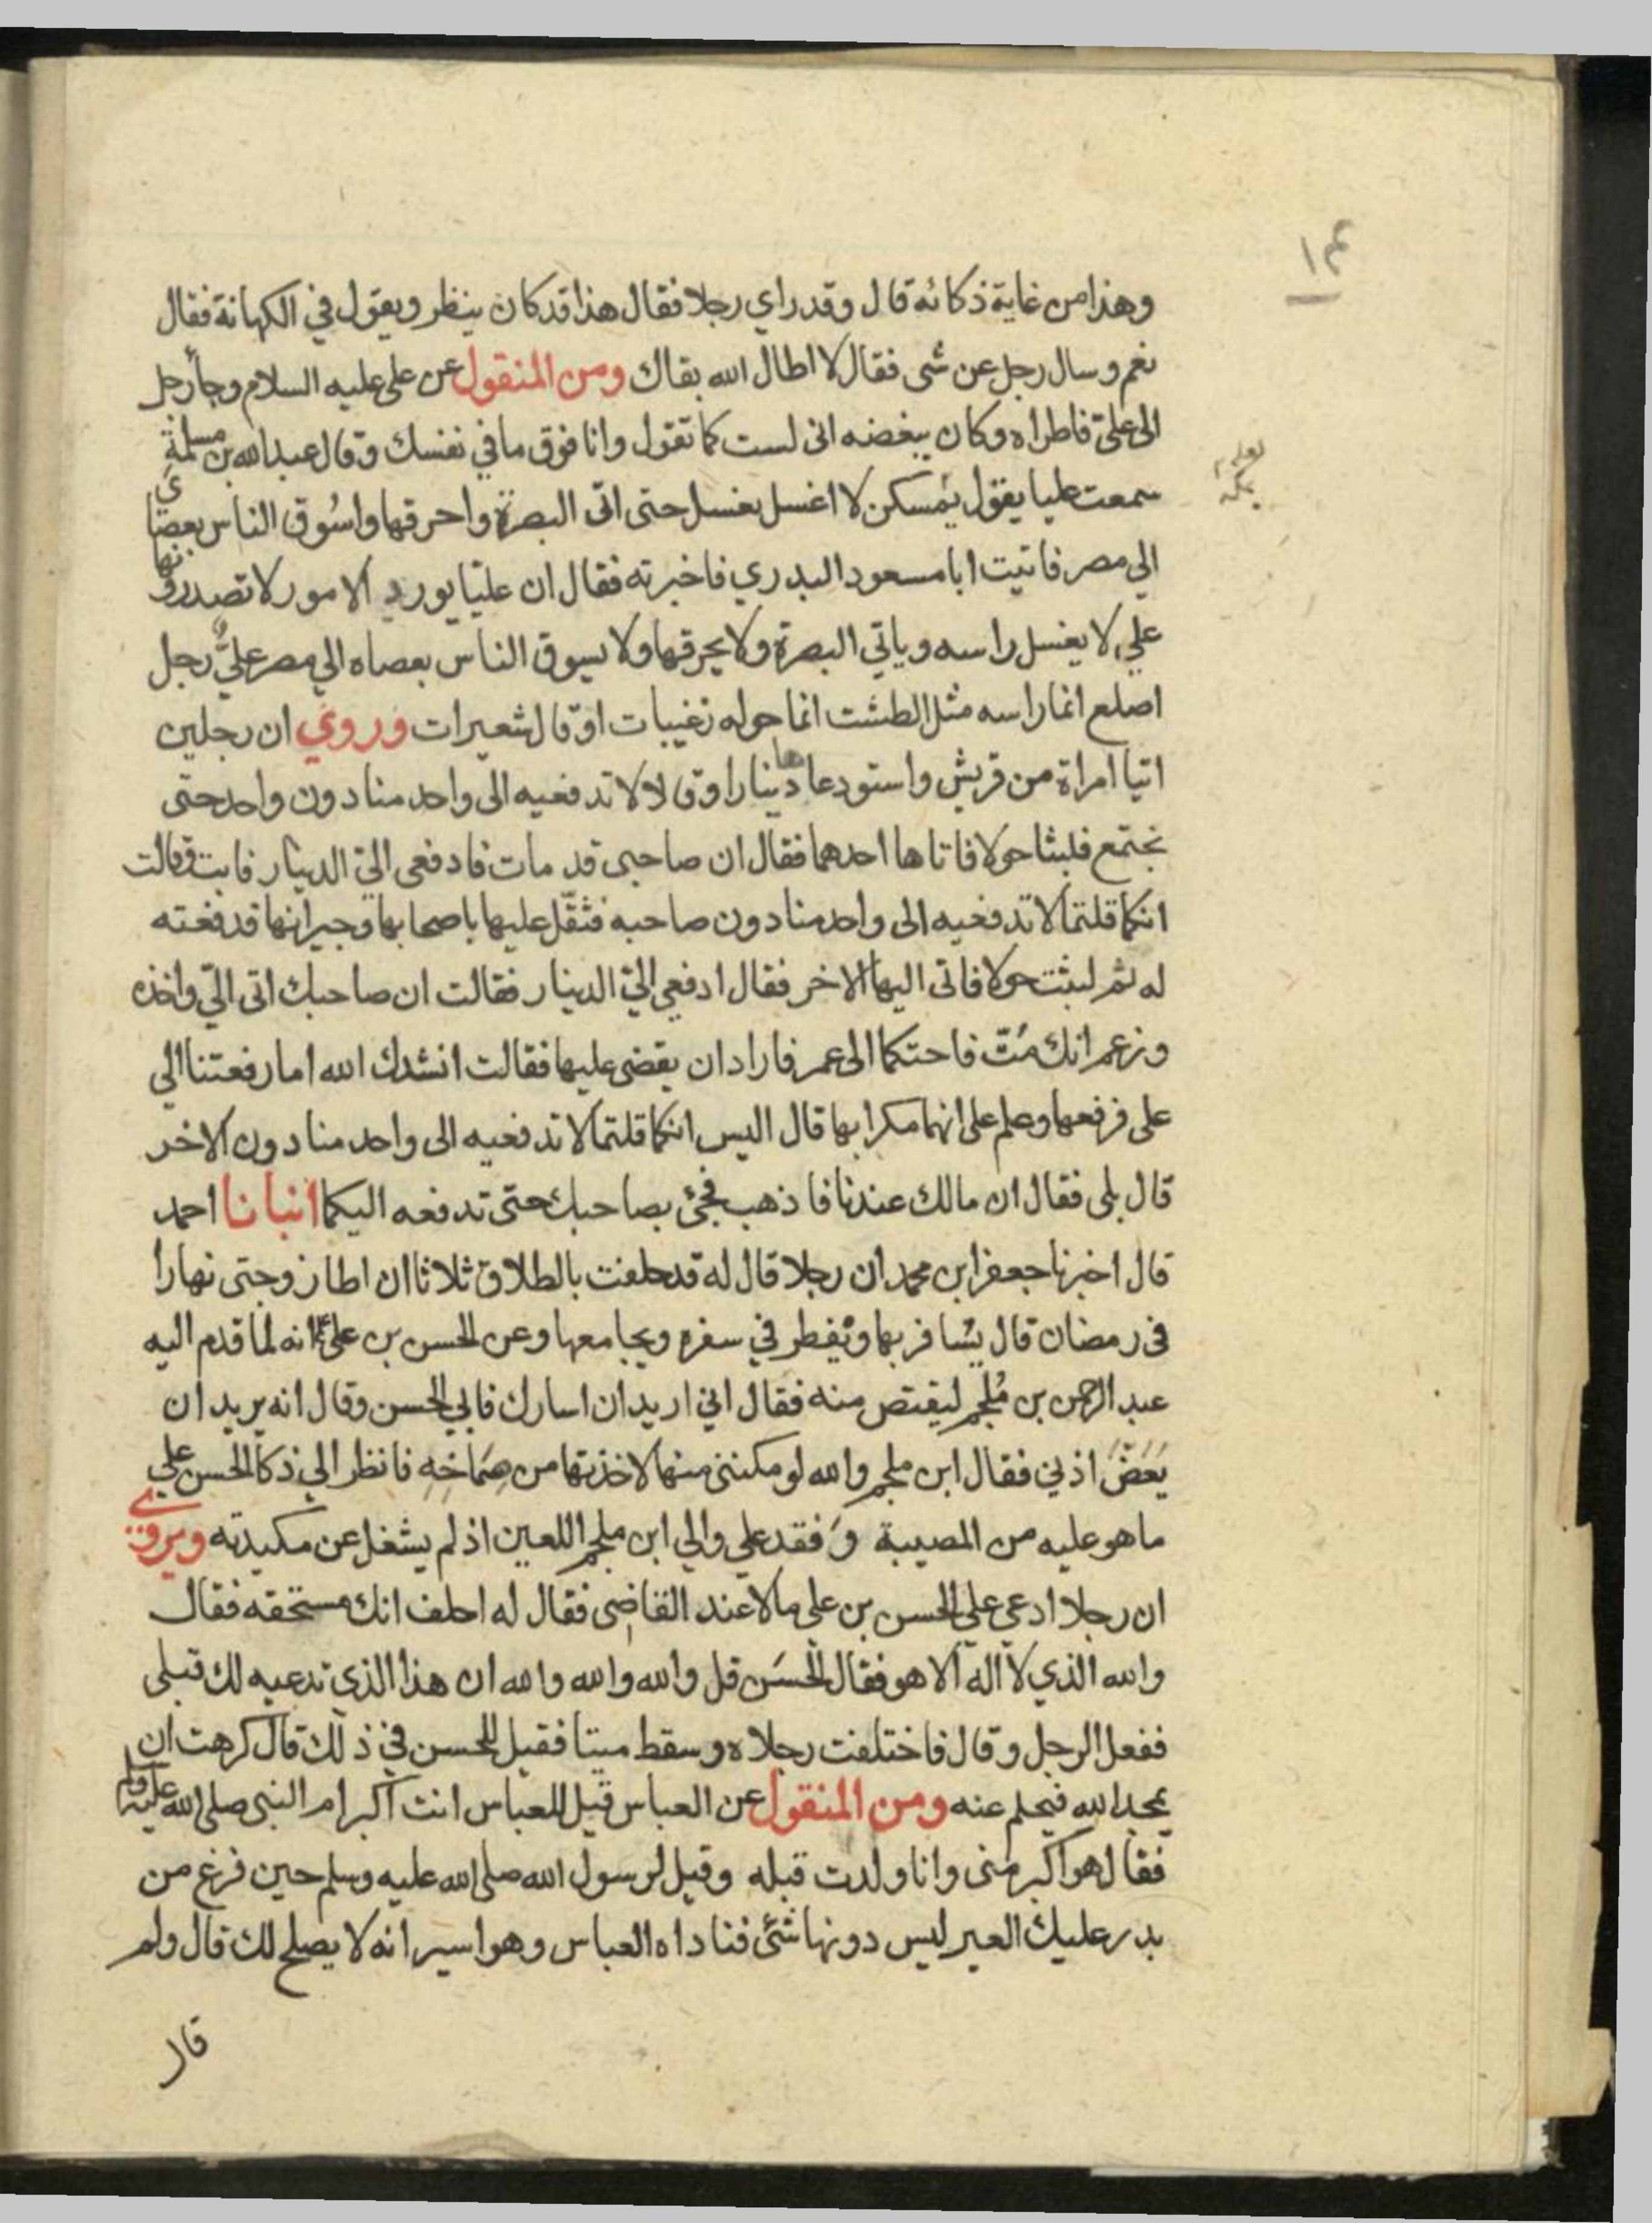 ١٤
وهذا من غاية ذكائه قال وقد راي رجلا فقال هذا قد كان ينظر ويقول في الكهانة فقال
نعم وسال رجل عن شى فقال لا اطال الله بقاك ومن المنقول عن على عليه السلام وجأ رجل
الى علىّ فاطراه وكان يبغضه انى لست كما تقول وانا فوق ما في نفسك وقال عبد الله بن مسلمة
سمعت عليا يقول بمسكن لا اغسل بغسل حتى اتى البصرة واحرقها واسُوق الناس بعصاى
الي مصر فاتيت ابا مسعود البدري فاخبرته فقال ان عليّا يورد الامور لا تصدرونها
علي لا يغسل راسه وياتي البصرة ولا يحرقها ولا يسوق الناس بعصاه الي مصر عليٌّ رجل
اصلع انما راسه مثل الطشت انما حوله زغيبات او قال شعيرات وروي ان رجلين
اتيا امراة من قريش واستودعاها دينارا وقالا لا تدفعيه الى واحد منا دون واحد حتى
نجتمع فلبثا حولا فاتاها احدهما فقال ان صاحبى قد مات فادفعى اليّ الدينار فابت وقالت
انكما قلتما لا تدفعيه الى واحد منا دون صاحبه فثقّل عليها باصحابها وجيرانها فدفعته
له ثم لبثت حولا فاتى اليها الاخر فقال ادفعي اليّ الدينار فقالت ان صاحبك اتى اليّ واخذه
وزعم انك مُتّ فاحتكما الى عمر فاراد ان يقضى عليها فقالت انشدك الله اما رفعتنا الي
على فرفعها وعلم على انهما مكرا بها قال اليس انكما قلتما لا تدفعيه الى واحد منا دون الاخر
قال بلى فقال ان مالك عندنا فاذهب فجئ بصاحبك حتى تدفعه اليكما انبانا احمد
قال اخبرنا جعفر ابن محمد ان رجلا قال له قد حلفت بالطلاق ثلاثا ان اطا زوجتى نهارا
فى رمضان قال يسَافر بها ويُفطر في سفره ويجامعها وعن الحسن بن على انه لما قدم اليه
عبد الرحمن بن مُلجم ليقتص منه فقال اني اريد ان اسارك فابي الحسن وقال انه يريد ان
يَعَضّ اذني فقال ابن ملجم والله لو مكننى منها لاخذتها من صمَاخه فانظر الي ذكا الحسن علي
ما هو عليه من المصيبة وَفقد علي والي ابن ملجم اللعين اذ لم يشغل عن مكيدته ويروى
ان رجلا ادعى على الحسن بن على مالا عند القاضى فقال له احلف انك مستحقه فقال
والله الذي لا اله الا هو فقال الحسَن قل والله والله والله ان هذا الذي تدعيه لك قبلى
ففعل الرجل وقال فاختلفت رجلاه وسقط ميتا فقيل للحسن في ذلك قال كرهت ان
يمجد الله فيحلم عنه ومن المنقول عن العباس قيل للعباس انت اكبر ام النبى صلى الله عليه وسلم
فقال هو اكبر منى وانا ولدت قبله وقيل لرسول الله صلى الله عليه وسلم حين فرغ من
بدر عليك العير ليس دونها شئ فناداه العباس وهو اسير انه لا يصلح لك قال ولم
قال